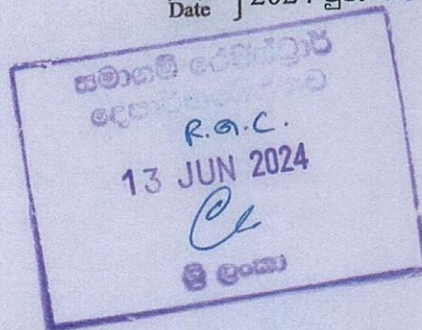 Date ] 2024
සමාගම් රෙජිස්ට්‍රාර්
දෙපාර්තමේන්තුව
R.G.C.
13 JUN 2024
ශ්‍රී ලංකා